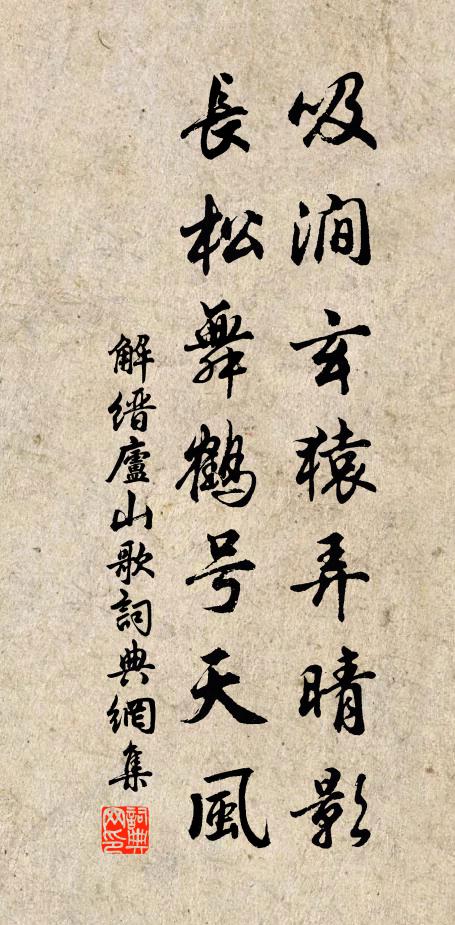 吸澗玄猿弄晴影
長松舞鶴号天風
解缙廬山歌詞典網集
詞典网印